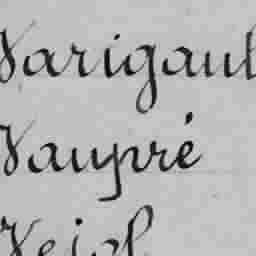 Varigaul
Vaupré